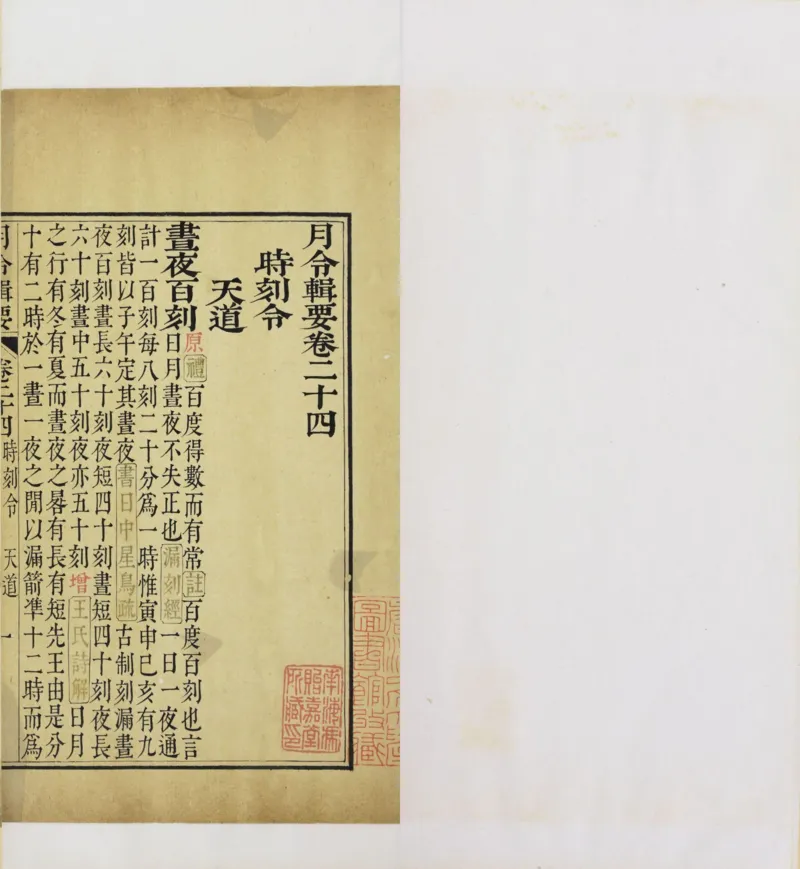 月令輯要卷二十四
時刻令
天道
晝夜百刻
原禮百度得數而有常註百度百刻也言
日月晝夜不失正也漏刻經一日一夜通
計一百刻每八刻二十分爲一時惟寅申巳亥有九
刻皆以子午定其晝夜書日中星鳥疏古制刻漏晝
夜百刻晝長六十刻夜短四十刻晝短四十刻夜長
六十刻晝中五十刻夜亦五十刻增王氏詩解日月
之行有冬有夏而晝夜之晷有長有短先王由是分
十有二時於一晝一夜之閒以漏箭準十二時而爲
月令輯要 卷二十四 時刻令 天道 一
貽嘉堂
圖書館收藏